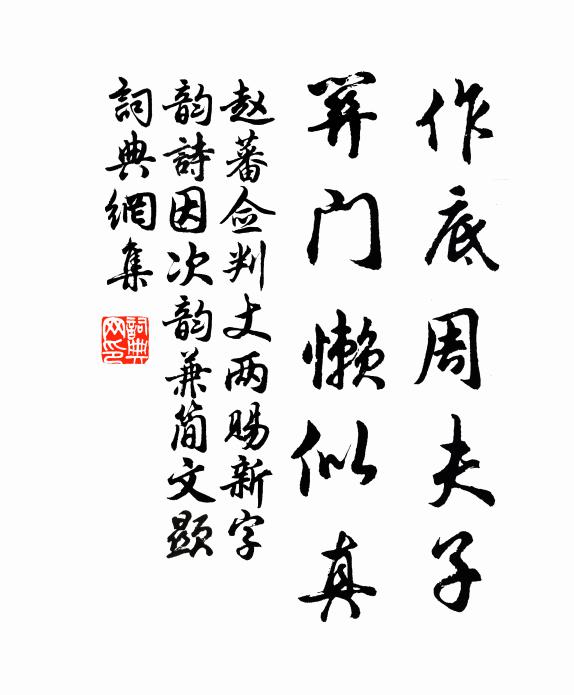 作底周夫子
门懒似真
赵蕃佥判丈两赐新字
韵詩因次韵兼简文顯
詞典網集
詞典网印